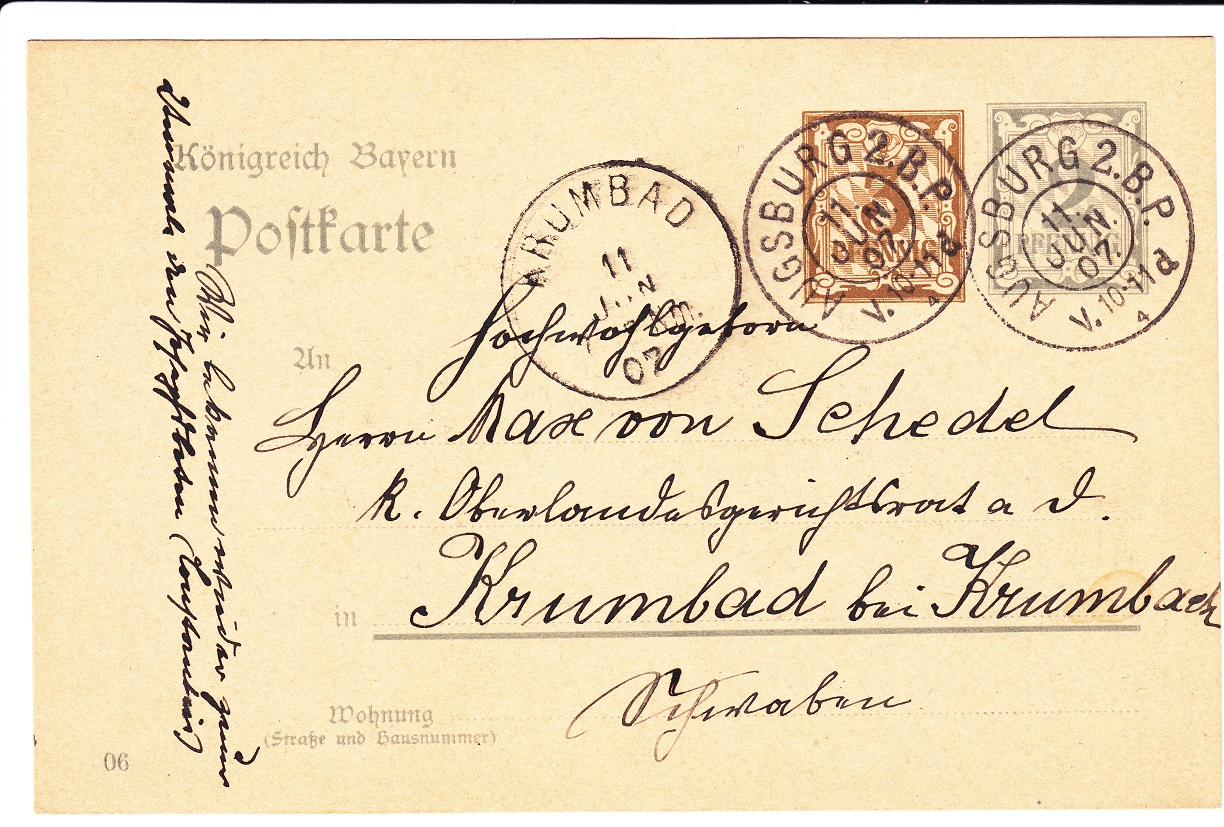 Königreich Bayern
Postkarte
AUGSBURG 2. B.P.
11.
JUN.
07.
V. 10-11 d
4
3
PFENNIG
AUGSBURG 2. B.P.
11.
JUN.
07.
V. 10-11 d
4
2
PFENNIG
KRUMBAD
11
JUN
07
Hochwohlgeborn
An
Herrn Max von Schedel
K. Oberlandesgerichtsrat a D.
in Krumbad bei Krumbach
Schwaben
Wohnung
(Straße und Hausnummer)
06
Wir bekommen wieder zum